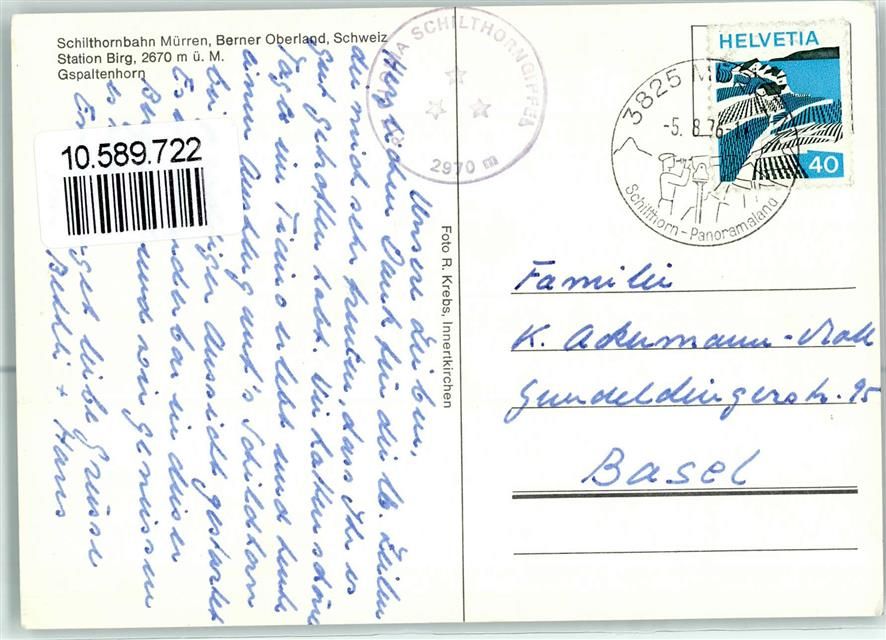 Schilthornbahn Mürren, Berner Oberland, Schweiz
Station Birg, 2670 m ü. M.
Gspaltenhorn
10.589.722
SCHILTHORNGIPFEL
2970 m
HELVETIA
40
3825 M
-5. 8. 76-1
Schilthorn-Panoramaland
Foto R. Krebs, Innertkirchen
Unsere Lieben,
Herzlichen Dank für die lb. Zeilen
die mich sehr freuten, dass Ihr es
gut getroffen habt. Wir hatten schöne
Tage im Ticino erlebt und heute
einen Ausflug auf's Schilthorn
bei Aussicht gestartet
Es wunderbar in dieser
und wir geniessen
es
liebe Grüsse
Bethli + Hans
Familie
K. Ackermann-Moll
Gundeldingerstr. 95
Basel